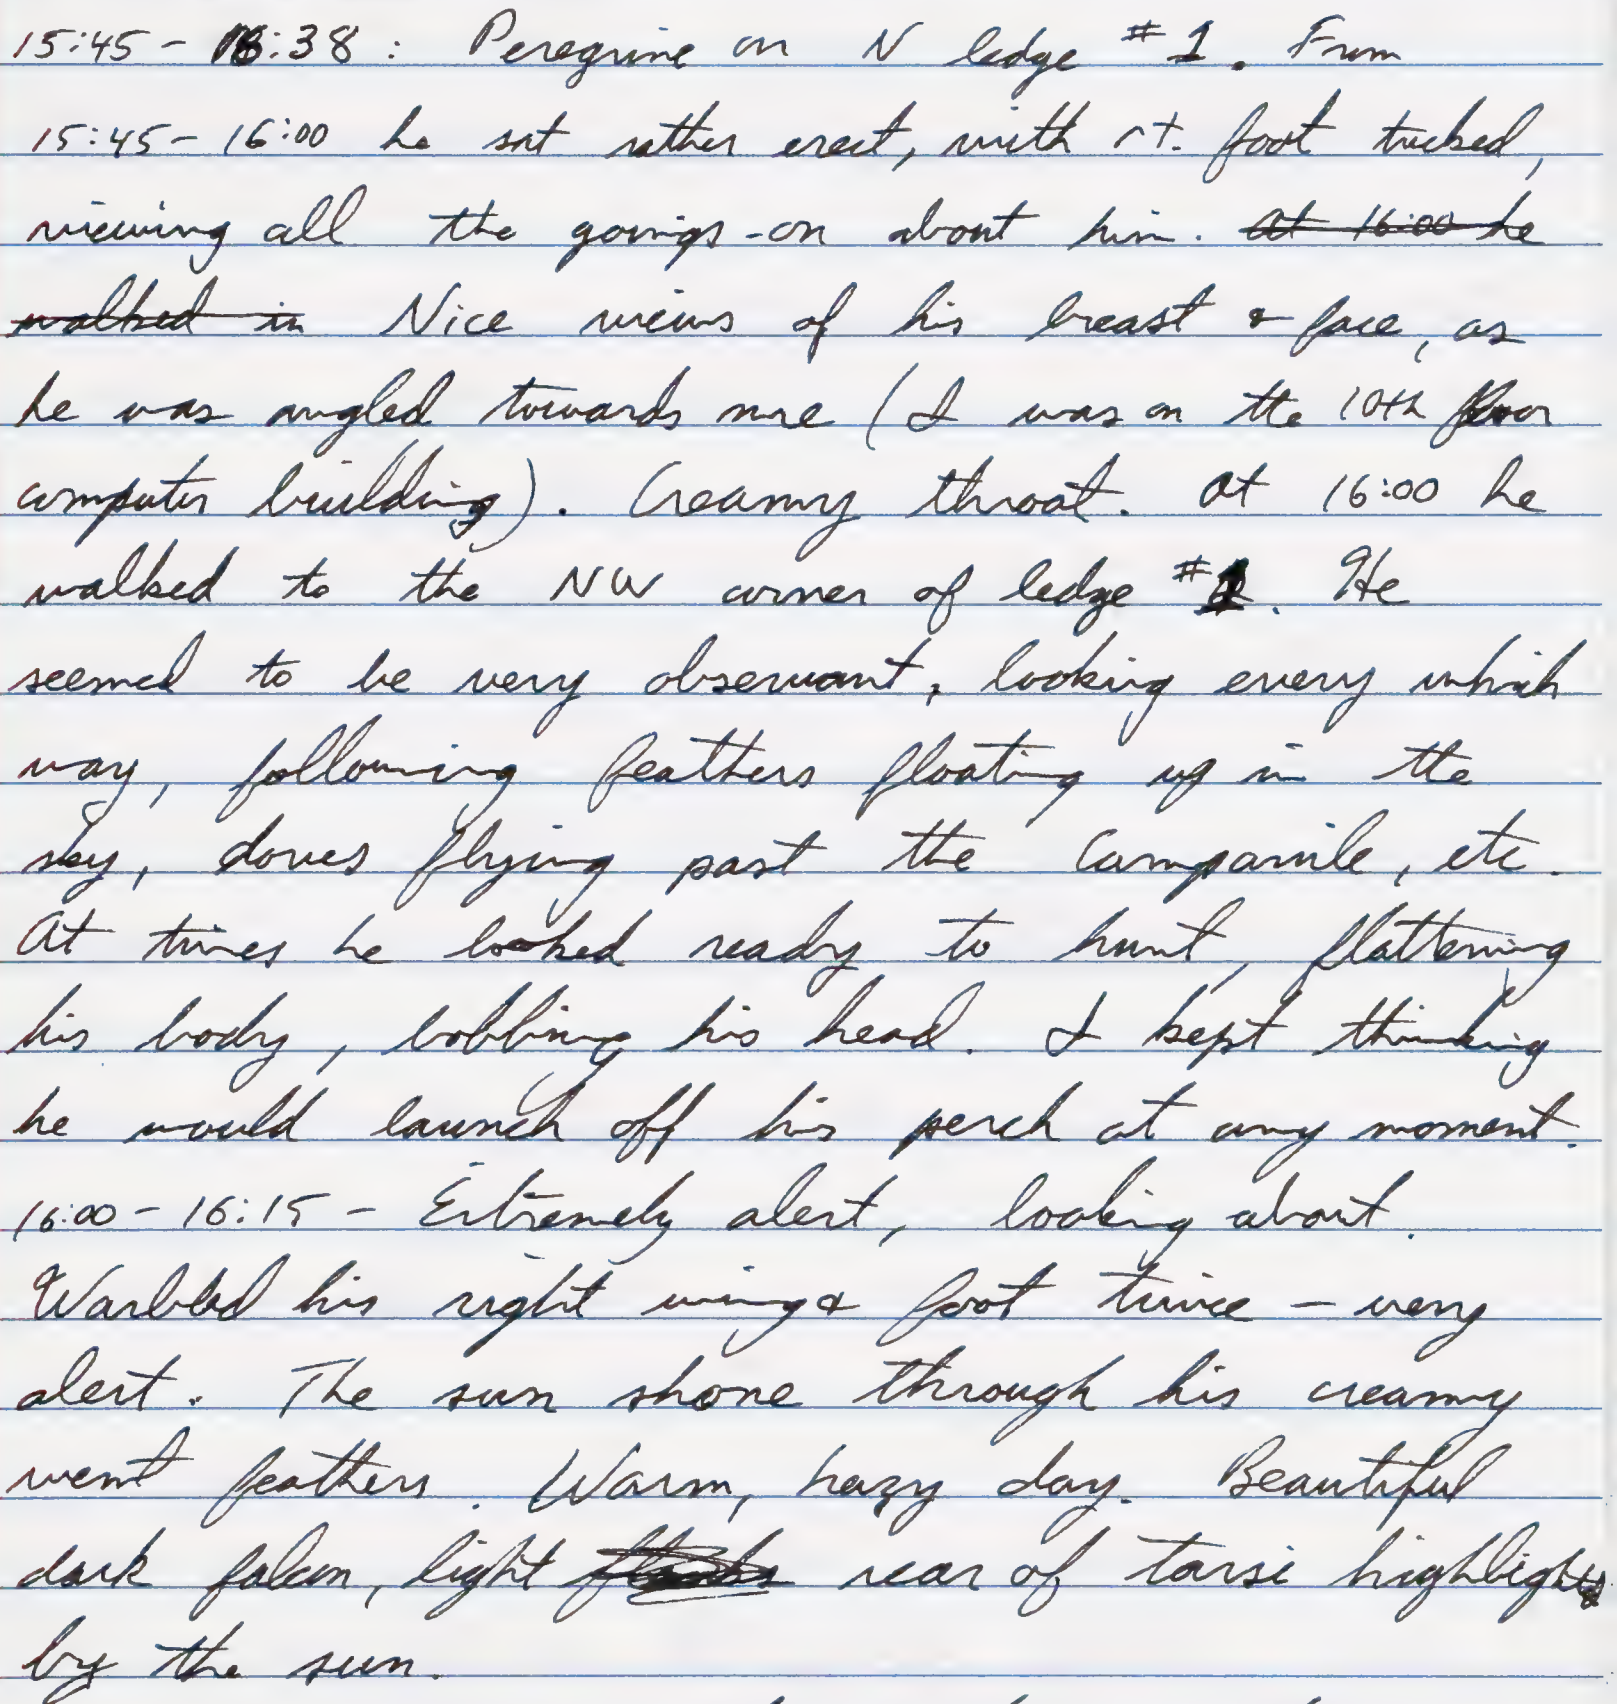 15:45 - 16:38 : Peregrine on N ledge #1. From
15:45 - 16:00 he sat rather erect, with rt. foot tucked,
viewing all the goings-on about him. At 16:00 he
walked in Nice views of his breast & face, as
he was angled towards me (I was on the 10th floor
computer building). Creamy throat. At 16:00 he
walked to the NW corner of ledge #1. He
seemed to be very observant, looking every which
way, following feathers floating up in the
sky, doves flying past the Campanile, etc.
At times he looked ready to hunt, flattening
his body, bobbing his head. I kept thinking
he would launch off his perch at any moment.
16:00 - 16:15 - Extremely alert, looking about.
Warbled his right wing & foot twice - very
alert. The sun shone through his creamy
vent feathers. Warm, hazy day. Beautiful
dark falcon, light rear of tarsi highlighted
by the sun.